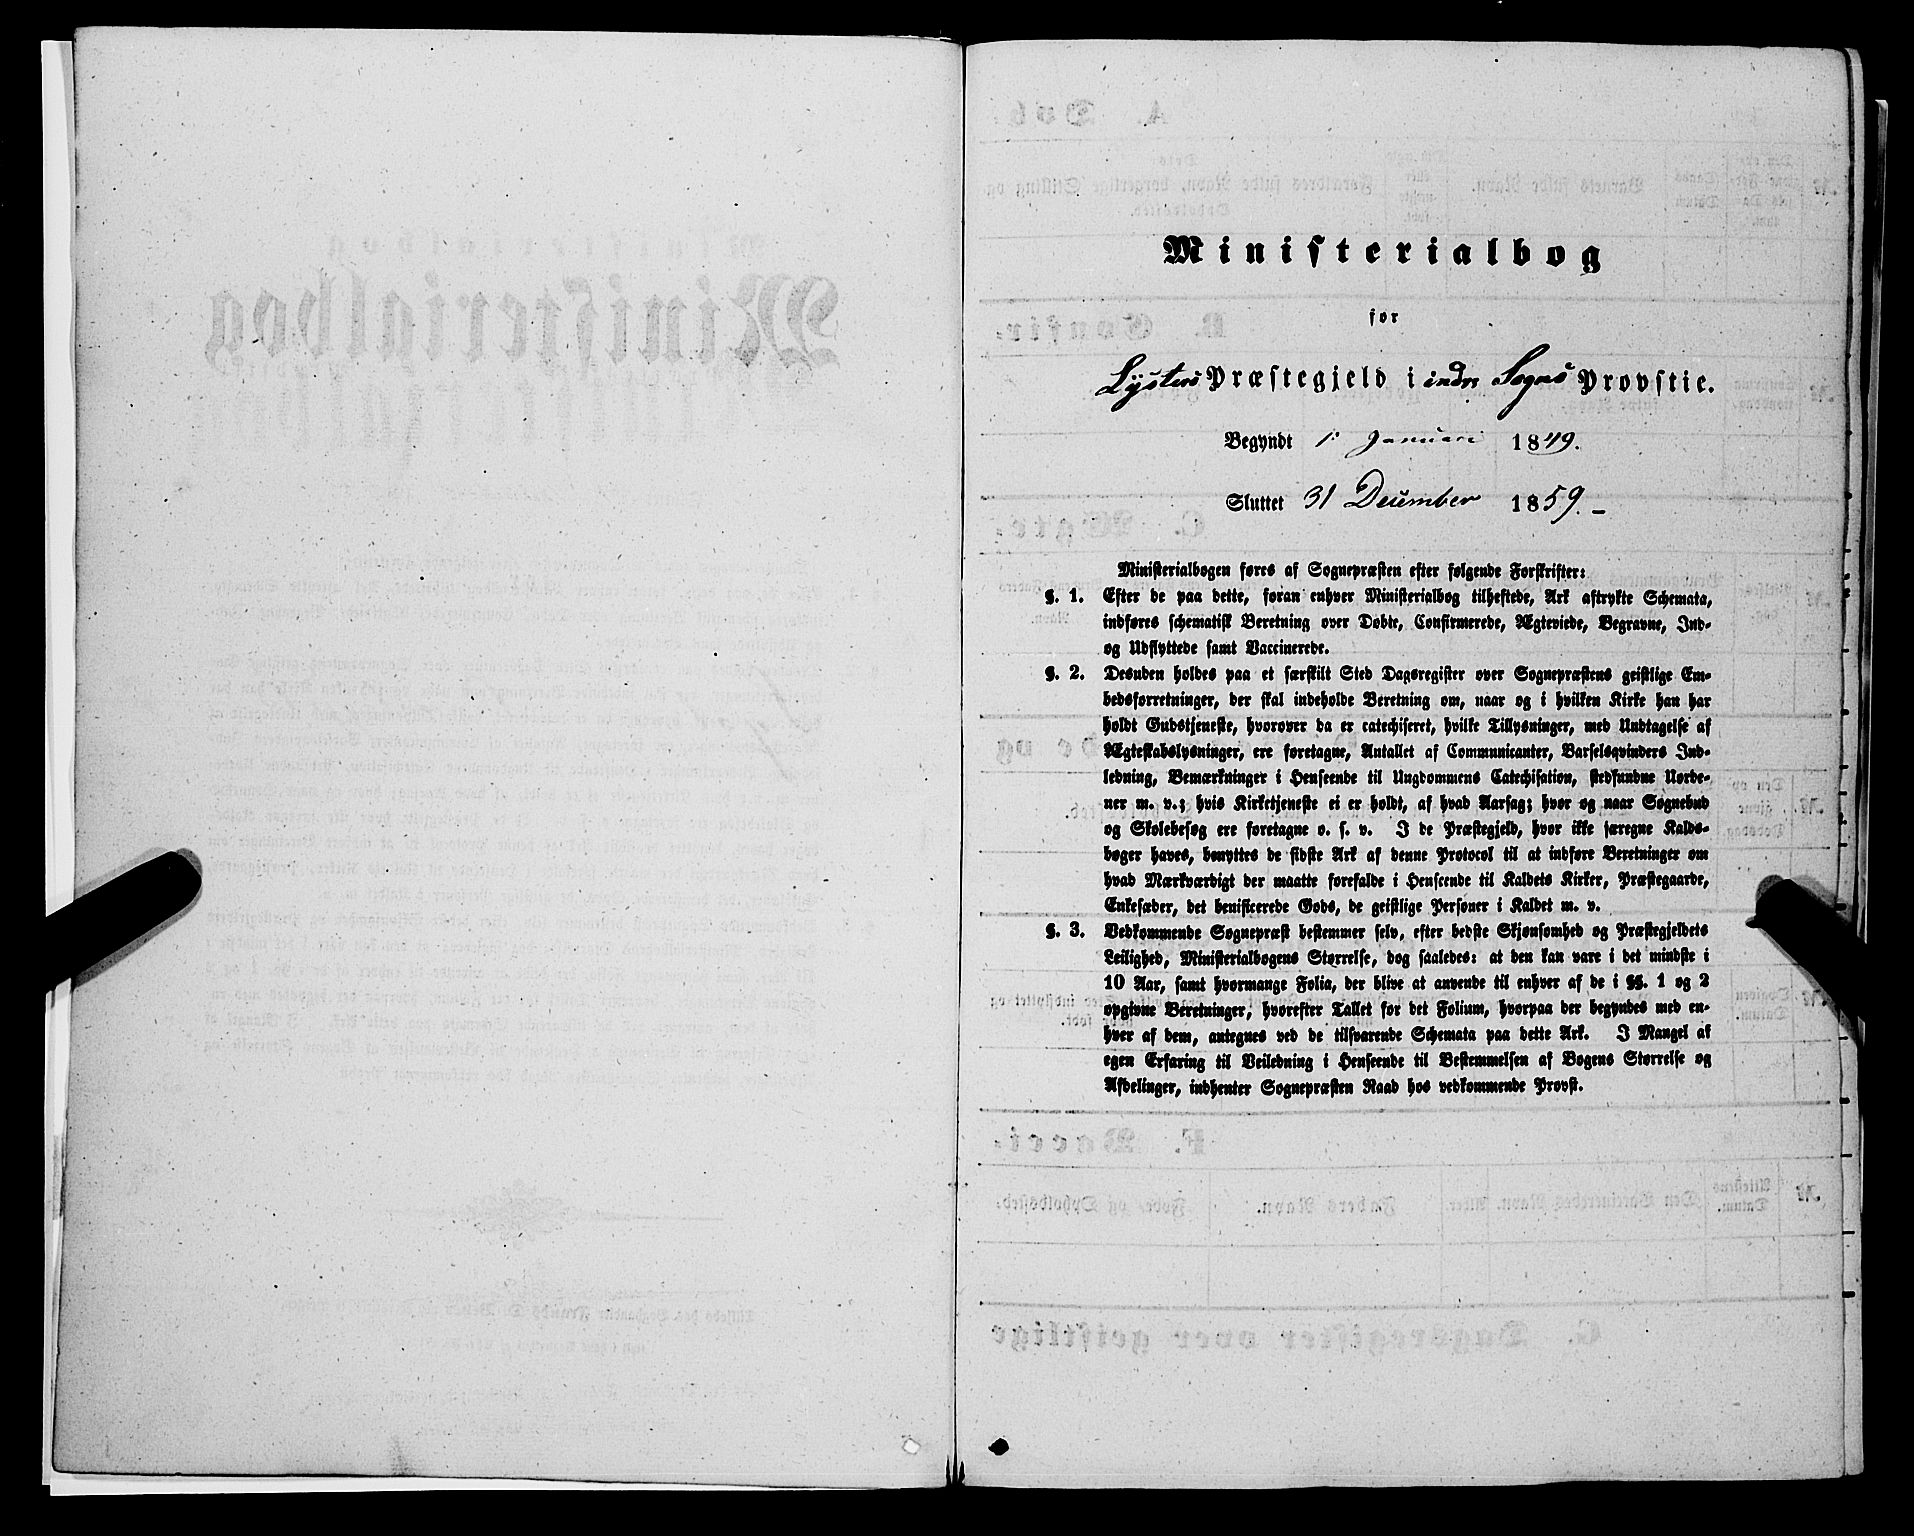 Ministerialbog
for
Lysters Præstegjeld i indre Sogns Provstie.
Begyndt 1. Januari 1849.
Sluttet 31 December 1859. –
Ministerialbogen føres af Sognepræsten efter følgende Forskrifter:
§. 1. Efter de paa dette, foran enhver Ministerialbog tilheftede, Ark aftrykte Schemata,
indføres schematisk Beretning over Døbte, Confirmerede, Ægteviede, Begravne, Ind-
og Udflyttede samt Vaccinerede.
§. 2. Desuden holdes paa et særskilt Sted Dagsregister over Sognepræstens geistlige Em-
bedsforretninger, der skal indeholde Beretning om, naar og i hvilken Kirke han har
holdt Gudstjeneste, hvorover da er catechiseret, hvilke Tillysninger, med Undtagelse af
Ægteskabslysninger, ere foretagne, Antallet af Communicanter, Barselqvinders Ind-
ledning, Bemærkninger i Henseende til Ungdommens Catechisation, stedfundne Uorde-
ner m. v.; hvis Kirketjeneste ei er holdt, af hvad Aarsag; hvor og naar Søgnebud
og Skolebesøg ere foretagne o. s. v. I de Præstegjeld, hvor ikke særegne Kalds-
bøger haves, benyttes de sidste Ark af denne Protocol til at indføre Beretninger om
hvad Mærkværdigt der maatte forefalde i Henseende til Kaldets Kirker, Præstegaarde,
Enkesæder, det beneficerede Gods, de geistlige Personer i Kaldet m. v.
§. 3. Vedkommende Sognepræst bestemmer selv, efter bedste Skjønsomhed og Præstegjeldets
Leilighed, Ministerialbogens Størrelse, dog saaledes: at den kan vare i det mindste i
10 Aar, samt hvormange Folia, der blive at anvende til enhver af de i §§. 1 og 2
opgivne Beretninger, hvorefter Tallet for det Folium, hvorpaa der begyndes med en-
hver af dem, antegnes ved de tilsvarende Schemata paa dette Ark. I Mangel af
egen Erfaring til Veiledning i Henseende til Bestemmelsen af Bogens Størrelse og
Afdelinger, indhenter Sognepræsten Raad hos vedkommende Provst.